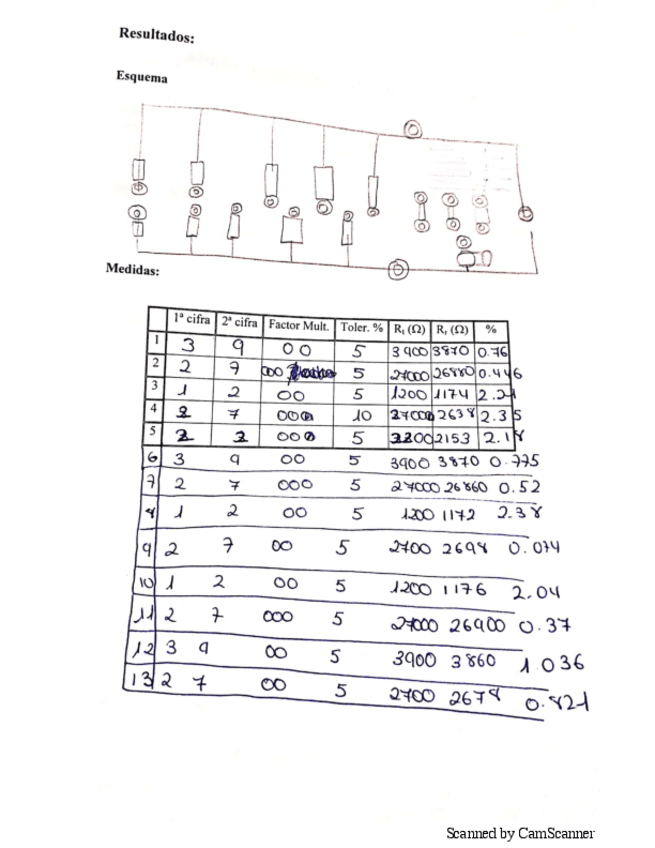 Resultados:
Esquema
Medidas:
1ª cifra 2ª cifra Factor Mult. Toler. % Rₜ (Ω) Rᵣ (Ω) %
1 3 9 00 5 3900 3870 0.76
2 2 7 000 5 27000 26880 0.446
3 1 2 00 5 1200 1174 2.21
4 2 7 00 10 2700 2638 2.35
5 2 2 00 5 2200 2153 2.18
6 3 9 00 5 3900 3870 0.775
7 2 7 000 5 27000 26860 0.52
8 1 2 00 5 1200 1172 2.38
9 2 7 00 5 2700 2698 0.074
10 1 2 00 5 1200 1176 2.04
11 2 7 000 5 27000 26900 0.37
12 3 9 00 5 3900 3860 1.036
13 2 7 00 5 2700 2678 0.821
Scanned by CamScanner